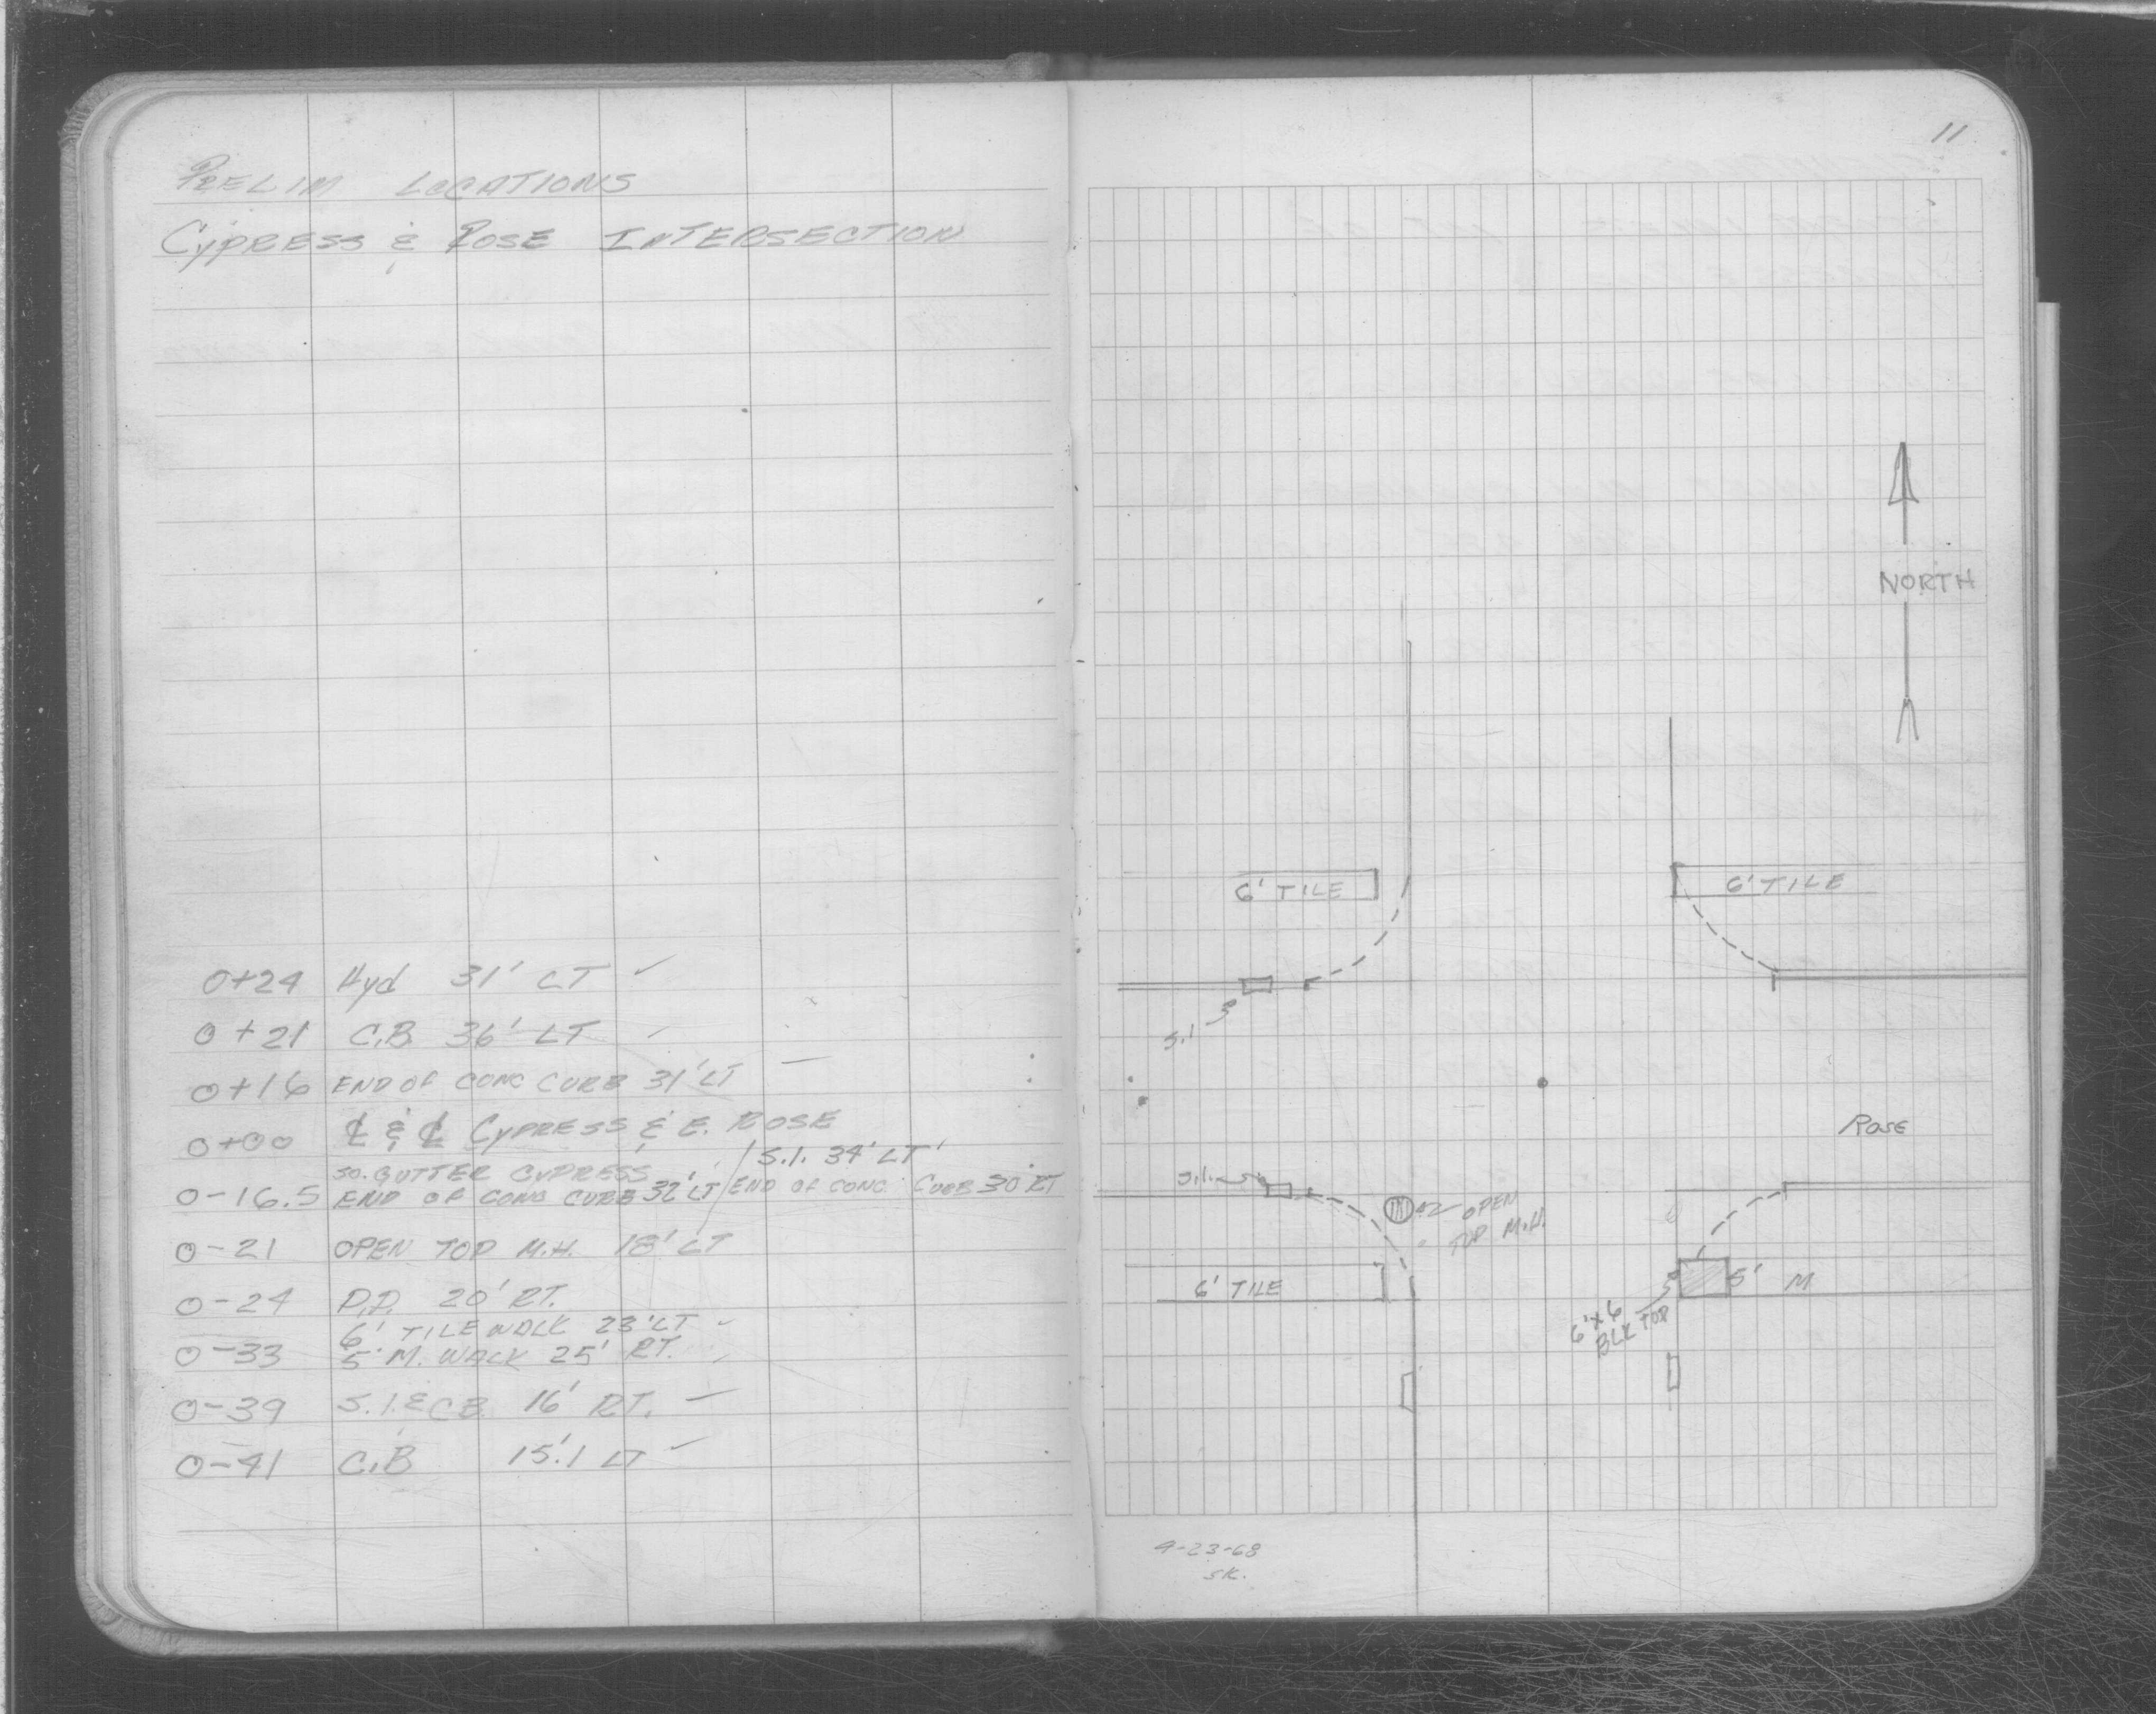 PRELIM LOCATIONS
CYPRESS & ROSE INTERSECTION
0+24 Hyd 31' LT ✓
0+21 C.B. 36' LT
0+16 END OF CONC CURB 31' LT
0+00 ℄ & ℄ CYPRESS & E. ROSE
SO. GUTTER CYPRESS / S.I. 34' LT
0-16.5 END OF CONC CURB 32' LT / END OF CONC CURB 30' RT
0-21 OPEN TOP M.H. 18' LT
0-24 P.P. 20' RT.
6' TILE WALK 23' LT
0-33 5' M. WALK 25' RT.
0-39 S.I. & C.B. 16' RT.
0-41 C.B 15'.1 LT
11
NORTH
6' TILE
6' TILE
S.I
ROSE
S.I.
OPEN
TOP M.H.
6' TILE
5' M
6'x6
BLK TOP
9-23-68
SK.